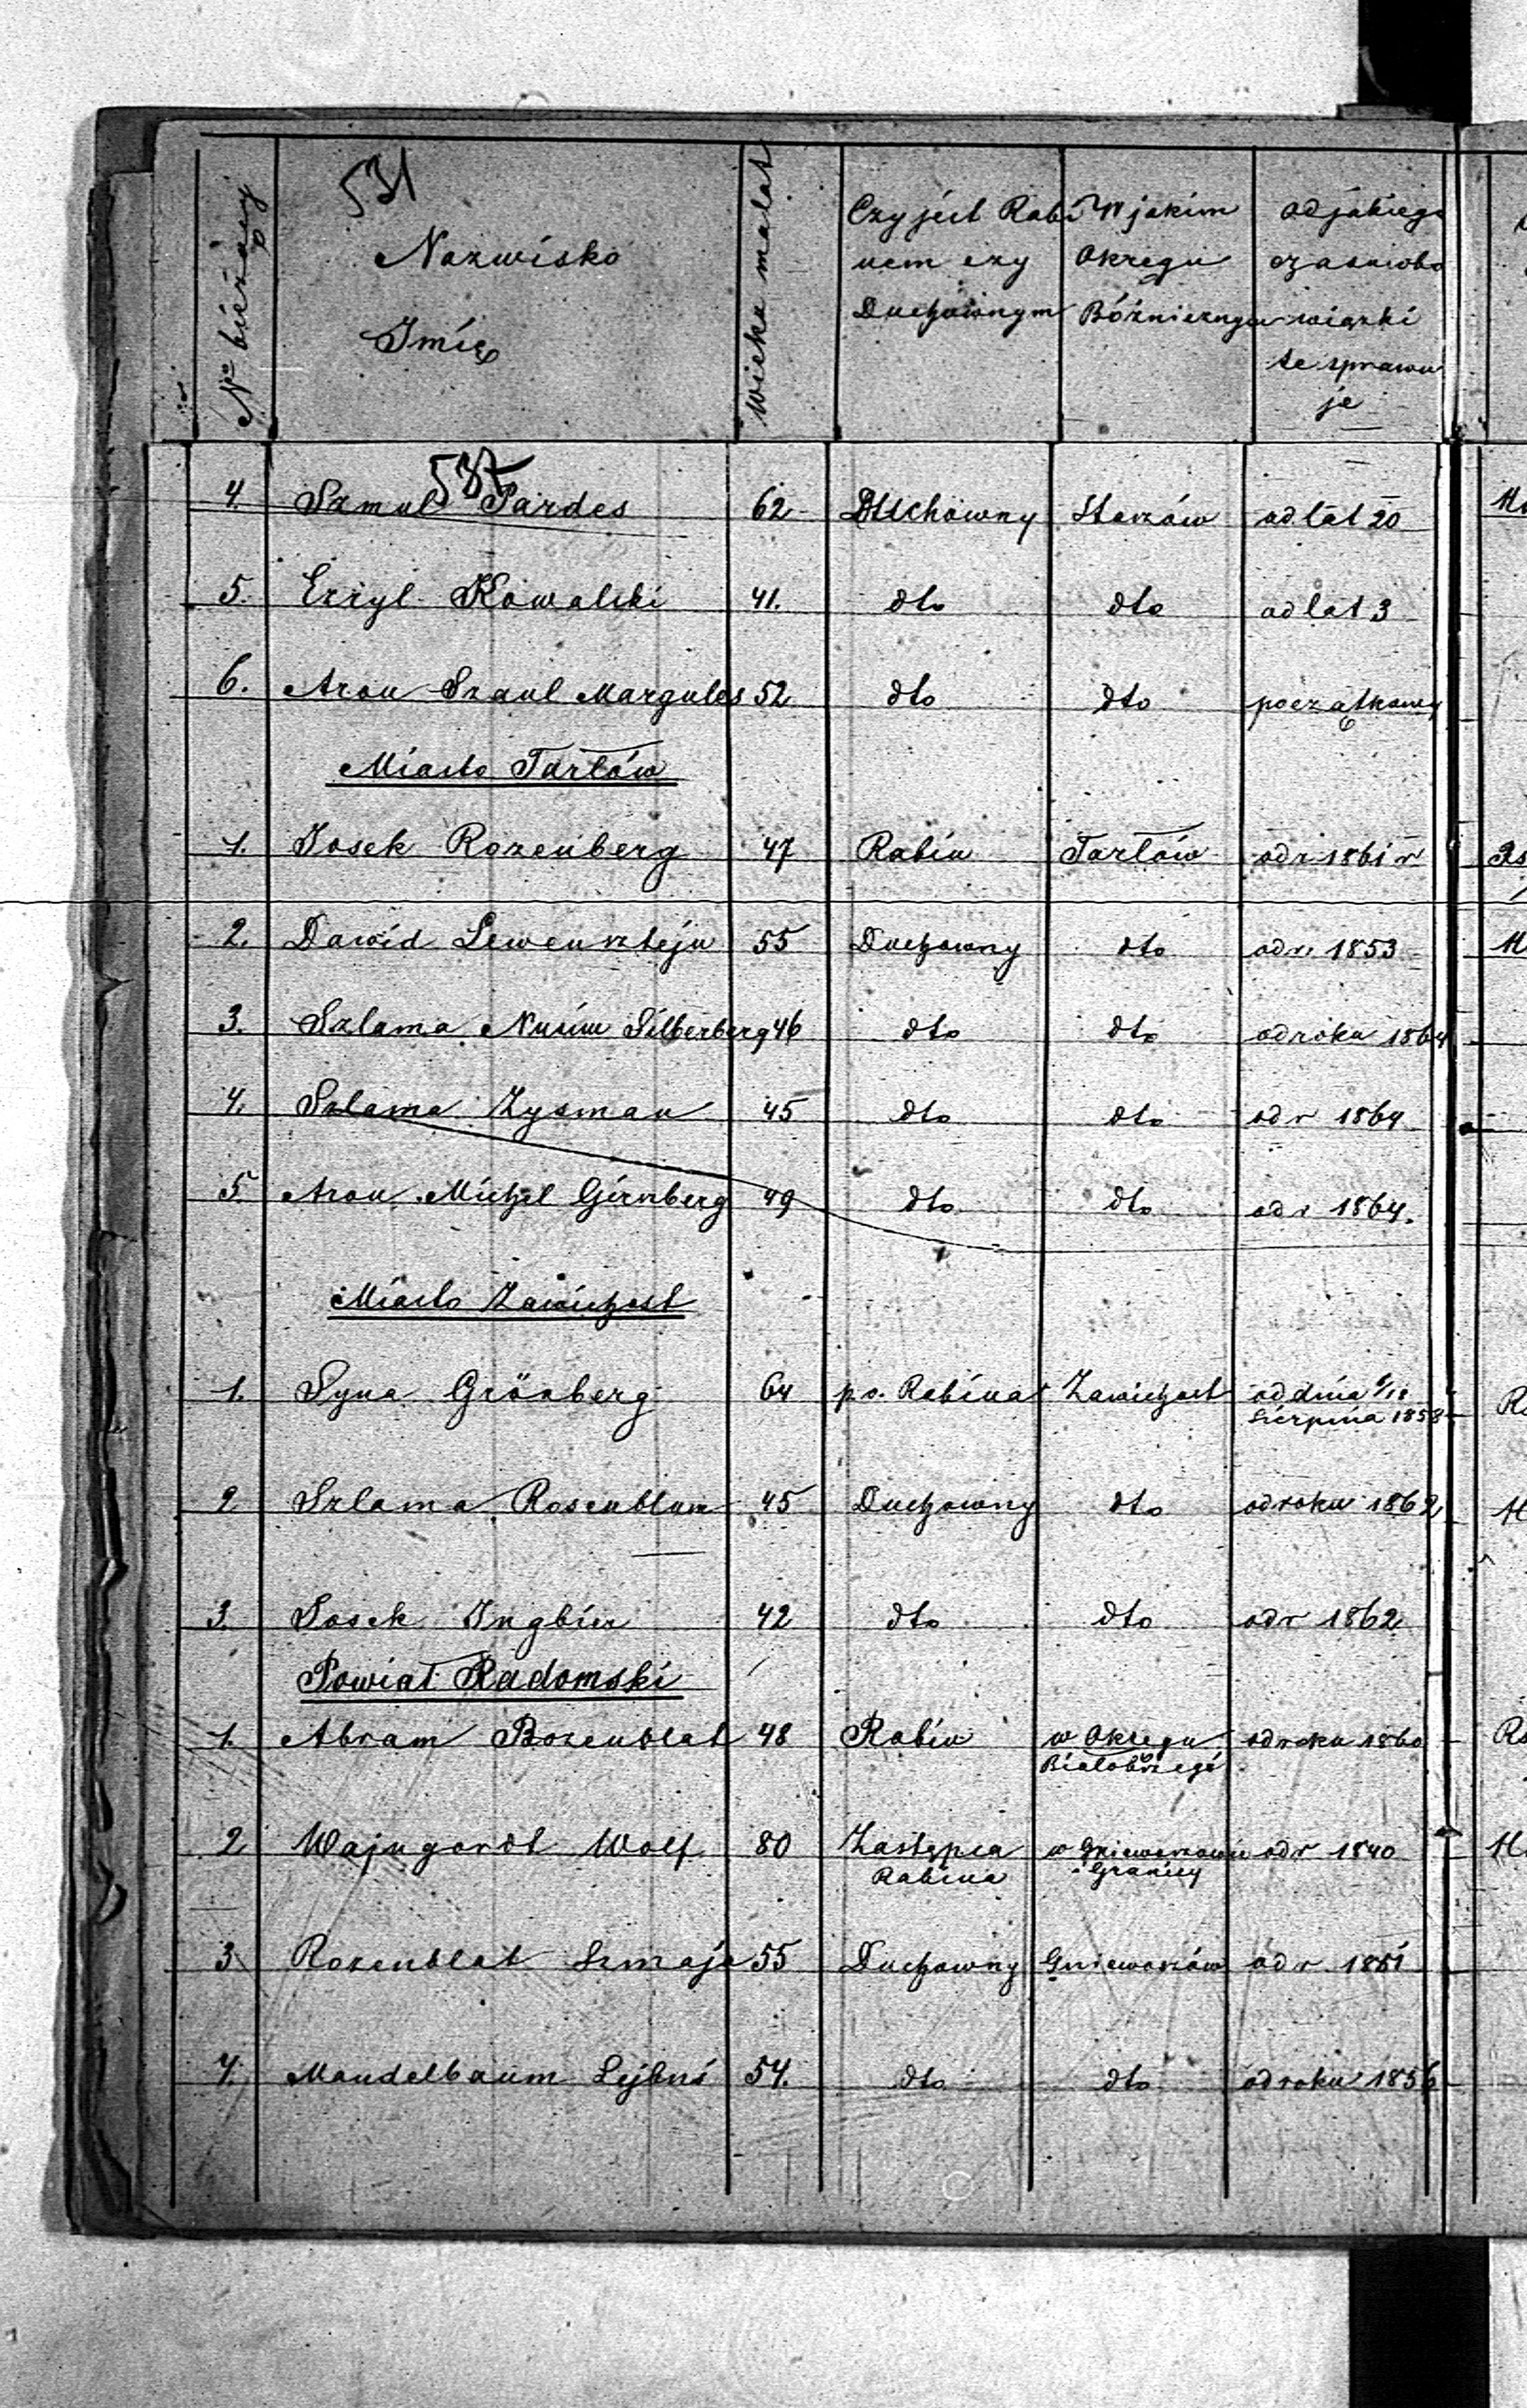 531
Nr bieżący
Nazwisko
Imię
wieku ma lat
Czy jest Rabi
nem czy
Duchownym
W jakim
Okręgu
Bóżniczngu
od jakiego
czasu obo
wiązki
te sprawu
je
537
4. Szmul Pardes 62 Duchowny Staszów od lat 20
5. Erzyl Kowalski 41. dto dto od lat 3
6. Aron Szaul Margules 52 dto dto początkowy
Miasto Tarłów
1. Josek Rozenberg 47 Rabin Tarłów od r 1861 r
2. Dawid Lewensztejn 55 Duchowny dto od r. 1853
3. Szlama Nusim Silberberg 46 dto dto od roku 1864
4. Szlama Zysman 45 dto dto od r 1864
5. Aron Michel Girnberg 49 dto dto od r 1864.
Miasto Zawichost
1. Syna Grönberg 64 p.o. Rabina Zawichost od dnia 6/18
Sierpnia 1858
2 Szlama Rosenblum 45 Duchowny dto od roku 1862
3. Josek Ingbir 42 dto dto od r 1862
Powiat Radomski
1. Abram Rozenblat 48 Rabin w Okręgu od roku 1860
Białobrzegi
2 Wajngordt Wolf 80 Zastępca w Gniewoszowie od r 1840
Rabina i Granicy
3 Rozenblat Szmaja 55 Duchowny Gniewoszów od r. 1851
4. Mandelbaum Lejbuś 54. dto dto od roku 1856